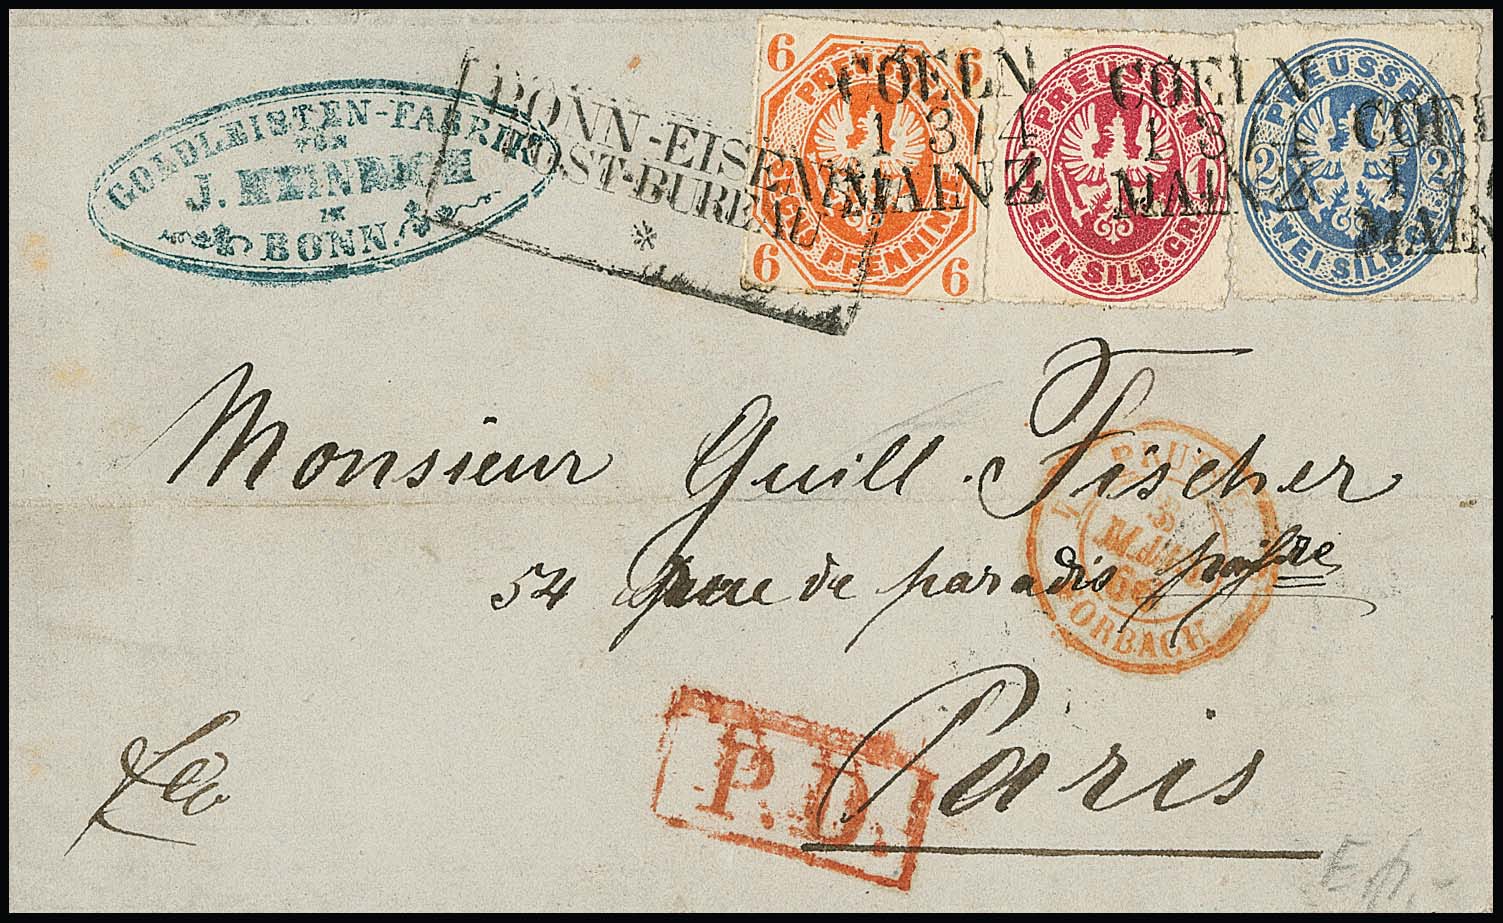 GOLDLEISTEN-FABRIK
VON
J. HEINRICH
IN
BONN.
BONN-EISENB.
POST-BUREAU
6 6
PREUSSEN
SECHS PFENNINGE
6 6
COELN
1 3/4
MAINZ
PREUSSEN
1 1
EIN SILB.GR.
COELN
1 3/4
MAINZ
PREUSSEN
2 2
ZWEI SILB.GR.
COEL
1
MAIN
Monsieur Guill. Fischer
54 Rue de paradis poiss.re
Paris
PRUSSE
3
MARS
FORBACH
P.D.
fco